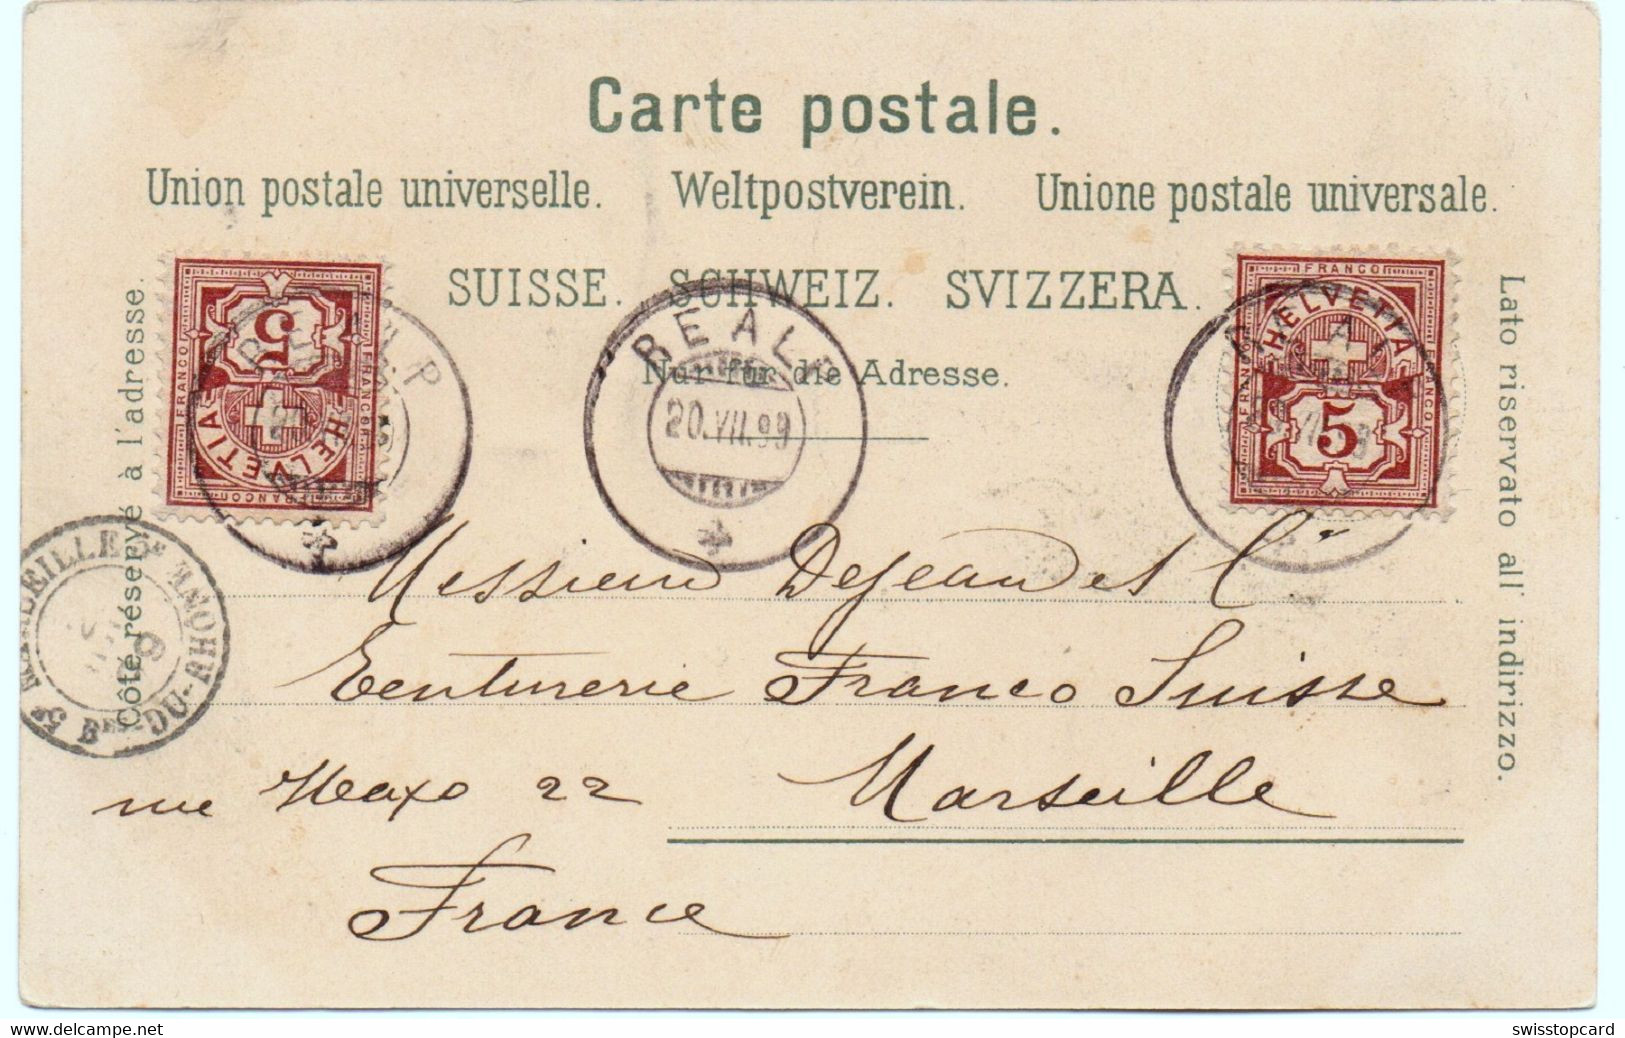 Carte postale.
Union postale universelle. Weltpostverein. Unione postale universale.
SUISSE. SCHWEIZ. SVIZZERA.
Nur für die Adresse.
Côté réservé à l'adresse.
Lato riservato all' indirizzo.
FRANCO HELVETIA 5 FRANCO FRANCO
FRANCO HELVETIA 5 FRANCO FRANCO
REALP
REALP
20.VII.99
REAL
MARSEILLE
BES DU-RHONE
Messieurs Dejean et Cie
Teinturerie Franco Suisse
rue Maxo 22 Marseille
France
delcampe.net
swisstopcard